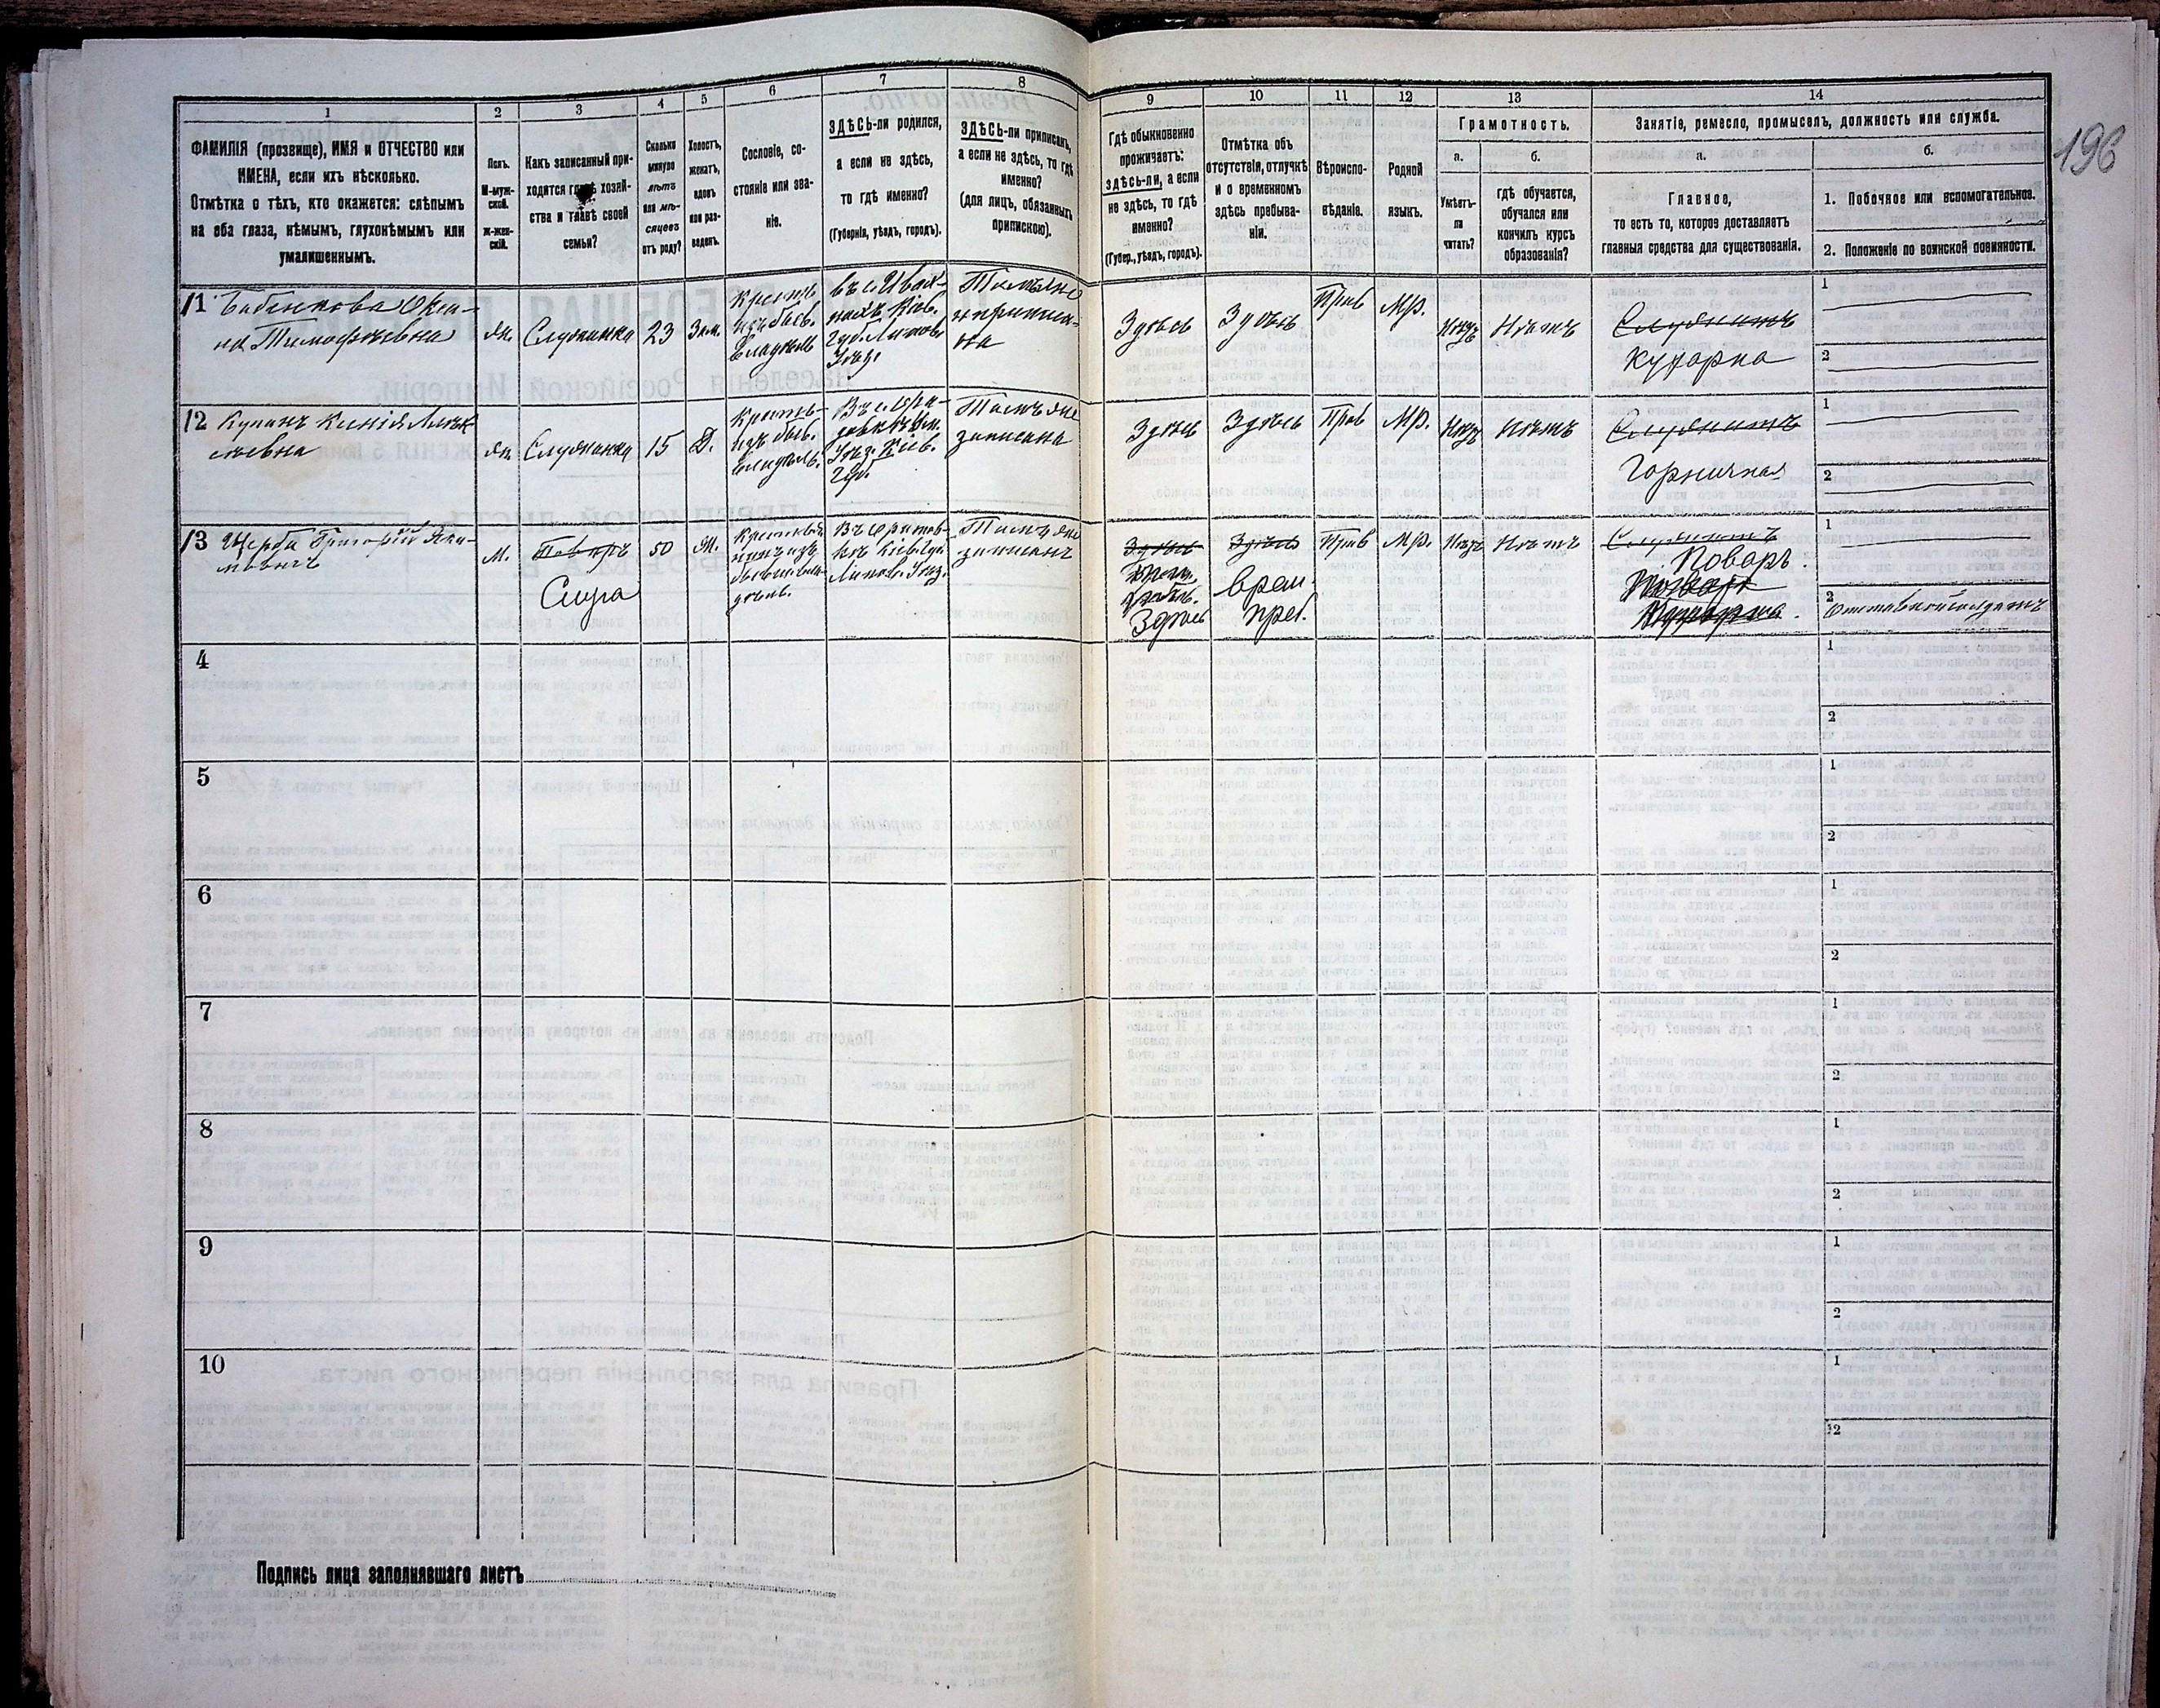 1
ФАМИЛІЯ (прозвище), ИМЯ и ОТЧЕСТВО или
ИМЕНА, если ихъ нѣсколько.
Отмѣтка о тѣхъ, кто окажется: слѣпымъ
на оба глаза, нѣмымъ, глухонѣмымъ или
умалишеннымъ.
2
Полъ.
М-муж-
ской.
Ж-жен-
скій.
3
Какъ записанный при-
ходится главѣ хозяй-
ства и главѣ своей
семьи?
4
Сколько
минуло
лѣтъ
или мѣ-
сяцевъ
отъ роду?
5
Холостъ,
женатъ,
вдовъ
или раз-
веденъ.
6
Сословіе, со-
стояніе или зва-
ніе.
7
ЗДѢСЬ-ли родился,
а если не здѣсь,
то гдѣ именно?
(Губернія, уѣздъ, городъ).
8
ЗДѢСЬ-ли приписанъ,
а если не здѣсь, то гдѣ
именно?
(для лицъ, обязанныхъ
припискою).
9
Гдѣ обыкновенно
проживаетъ:
здѣсь-ли, а если
не здѣсь, то гдѣ
именно?
(Губер., уѣздъ, городъ).
10
Отмѣтка объ
отсутствіи, отлучкѣ
и о временномъ
здѣсь пребыва-
ніи.
11
Вѣроиспо-
вѣданіе.
12
Родной
языкъ.
13
Грамотность.
а.
Умѣетъ-
ли
читать?
б.
Гдѣ обучается,
обучался или
кончилъ курсъ
образованія?
14
Занятіе, ремесло, промыселъ, должность или служба.
а.
Главное,
то есть то, которое доставляетъ
главныя средства для существованія.
б.
1. Побочное или вспомогательное.
2. Положеніе по воинской повинности.
196
11
Тимофѣевна
ж.
Служанка
23
Зам.
Крестъ
изъ быв.
Владѣль
Кіев.
губ. Липов.
Уѣз.
Тамъ же
и приписа-
на
Здѣсь
Здѣсь
Прав
Мр.
Нѣтъ
Нѣтъ
Служитъ
Кухарка
1
2
12
ж.
Служанка
15
Д.
Крестъ-
изъ быв.
Владѣль.
Уѣз. Кіев.
губ.
Тамъ же
записана
Здѣсь
Здѣсь
Прав
Мр.
Нѣтъ
Нѣтъ
Служитъ
Горничная
1
2
13 Щерба Григорій Яки-
мовичъ
м.
Поваръ
Слуга
50
Ж.
изъ
Кіев. губ.
Липов. Уѣз.
Тамъ же
записанъ
Здѣсь
Здѣсь
Здѣсь
врем.
преб.
Прав
Мр.
Нѣтъ
Нѣтъ
Служитъ
Поваръ.
1
2
Отставной солдатъ
4
1
2
5
1
2
6
1
2
7
1
2
8
1
2
9
1
2
10
1
2
Подпись лица заполнявшаго листъ